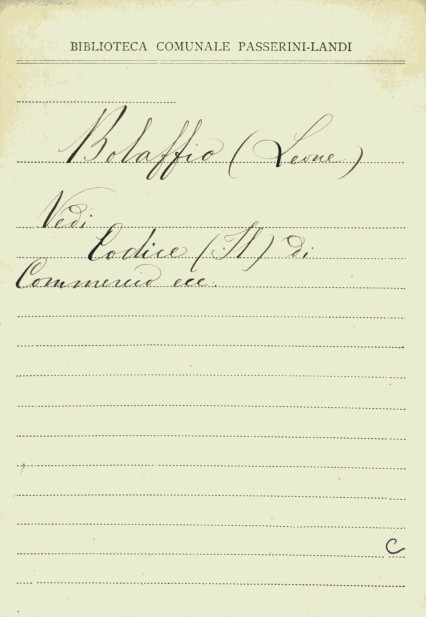 BIBLIOTECA COMUNALE PASSERINI-LANDI
Bolaffio (Leone)
Vedi
Codice (Il) di
Commercio ecc.
C